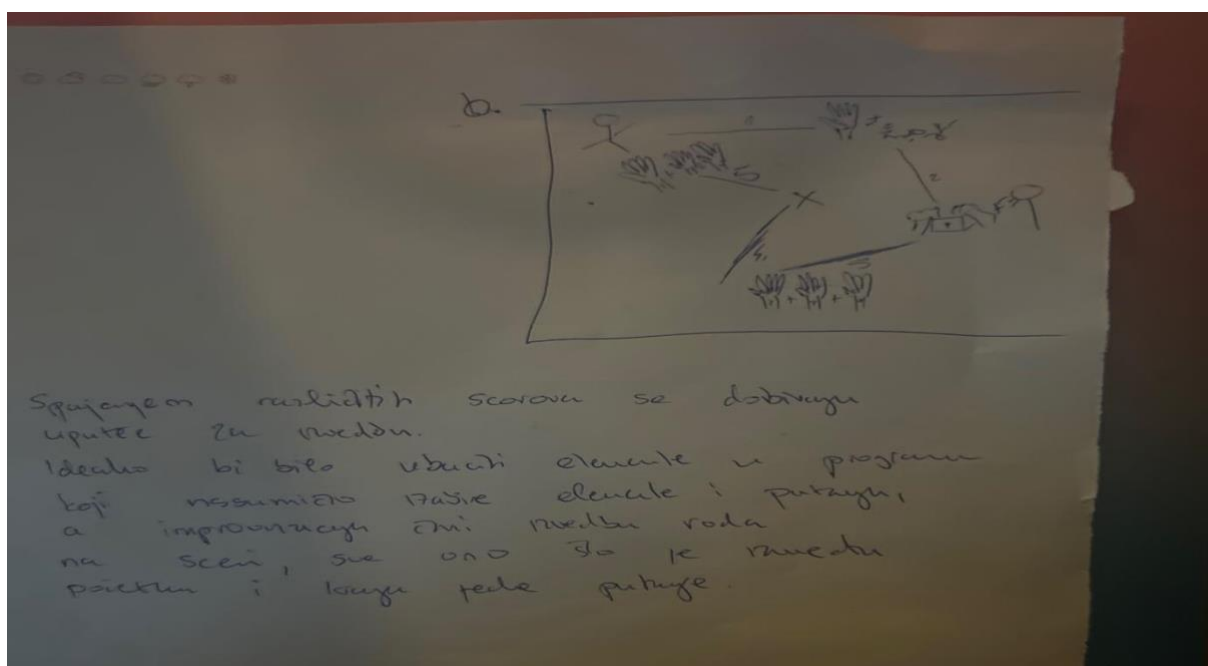 b.
1
2
5
3
Spajanjem različitih scorova se dobivaju
upute za izvedbu.
Idealno bi bilo ubaciti elemente u program
koji nasumično izašire elemente i putanju,
a improvizacija čini izvedbu roda
na sceni, sve ono što je između
početka i kraja jedne putanje.